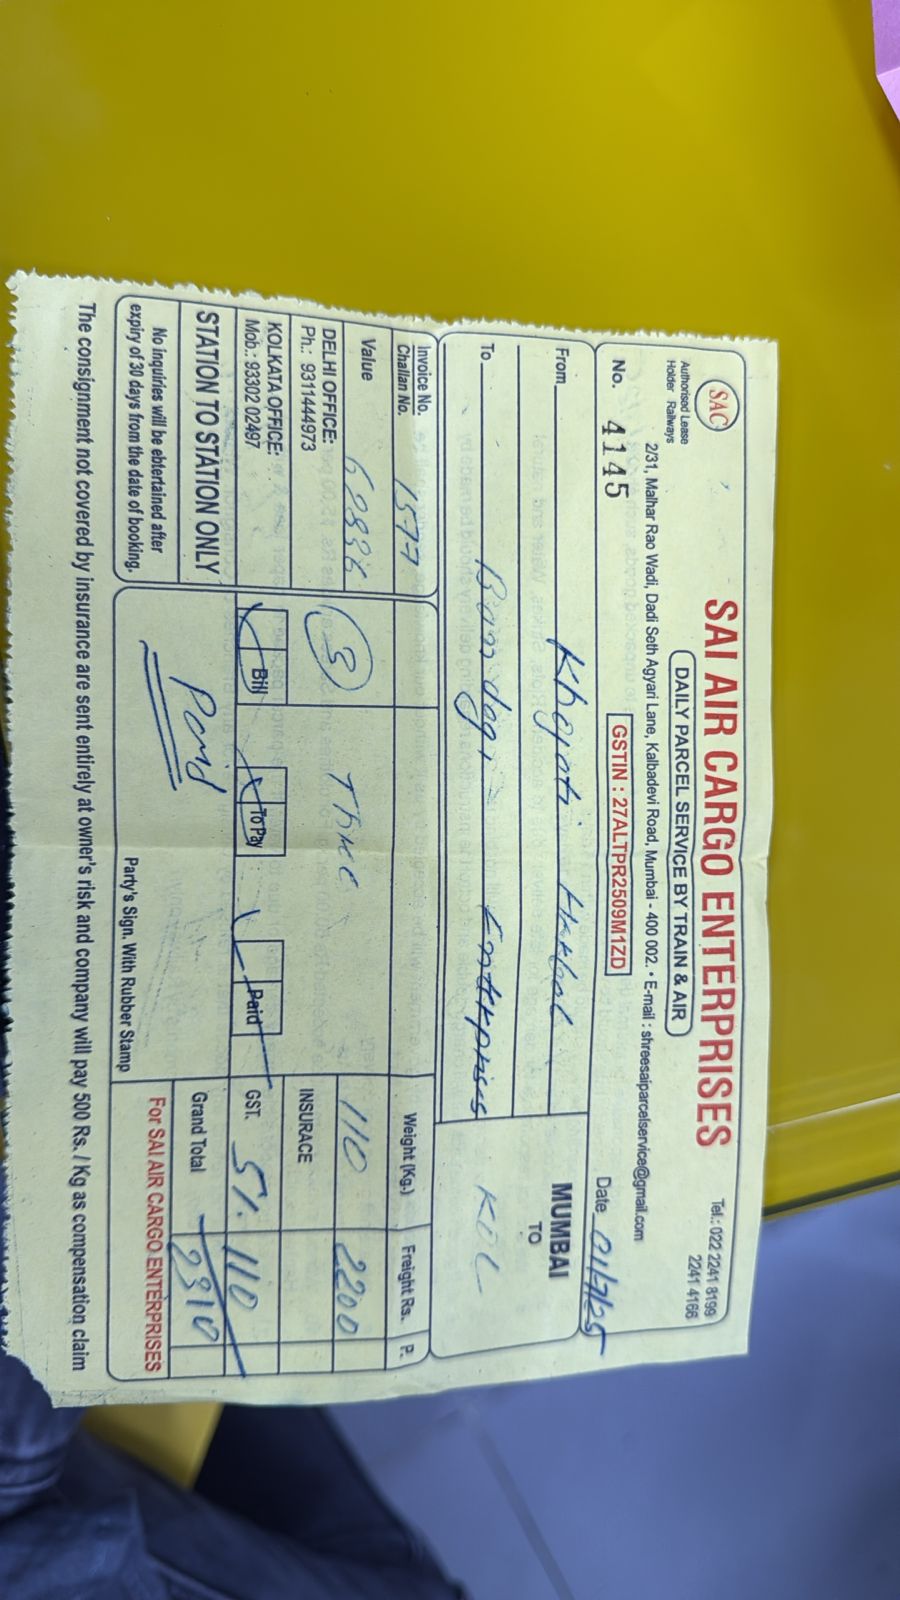 SAC
SAI AIR CARGO ENTERPRISES
Tel.: 022 2241 8199
2241 4166
Authorised Lease
Holder Railways
DAILY PARCEL SERVICE BY TRAIN & AIR
2/31, Malhar Rao Wadi, Dadi Seth Agyari Lane, Kalbadevi Road, Mumbai - 400 002. • E-mail : shreesaiparcelservice@gmail.com
No. 4145
GSTIN : 27ALTPR2509M1ZD
Date 01/7/25
From Khyati
MUMBAI
TO
KOL
To
Invoice No.
Challan No. 1577
Weight (Kg.)
Freight Rs.
P.
Value
3
Three
110
2200
DELHI OFFICE:
Ph.: 9311444973
INSURACE
KOLKATA OFFICE:
Mob.: 93302 02497
Bill
To Pay
Paid
GST. 5%
110
STATION TO STATION ONLY
Paid
Grand Total
2310
No inquiries will be ebtertained after
expiry of 30 days from the date of booking.
Party's Sign. With Rubber Stamp
For SAI AIR CARGO ENTERPRISES
The consignment not covered by insurance are sent entirely at owner's risk and company will pay 500 Rs. / Kg as compensation claim